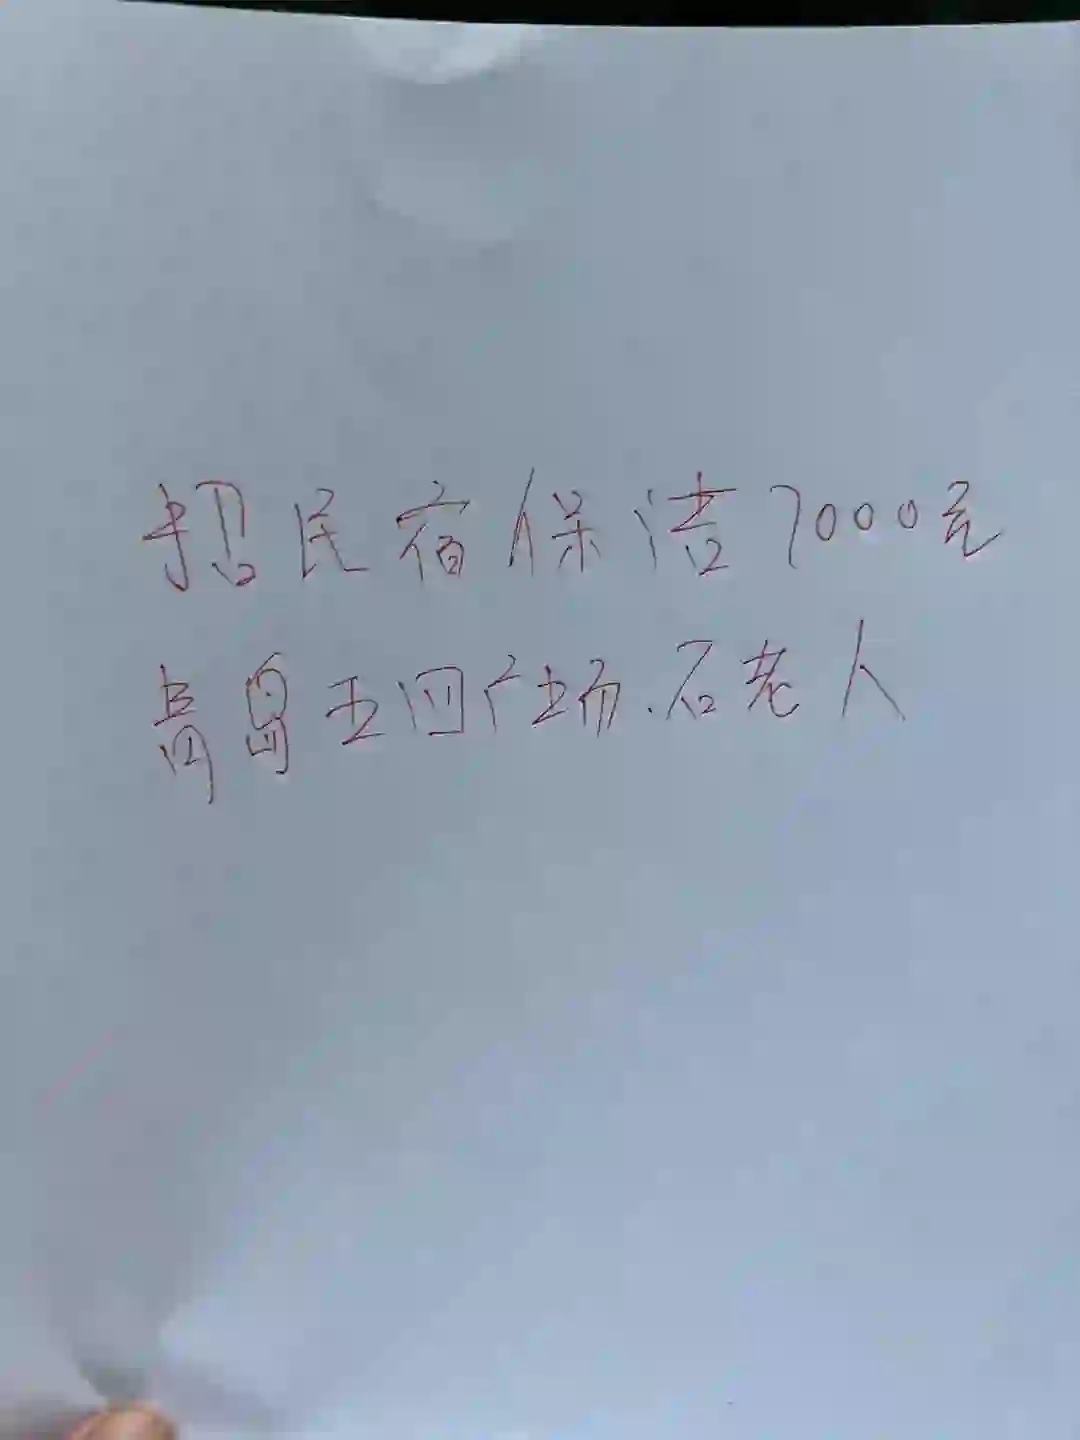 招民宿保洁7000元
青岛五四广场.石老人